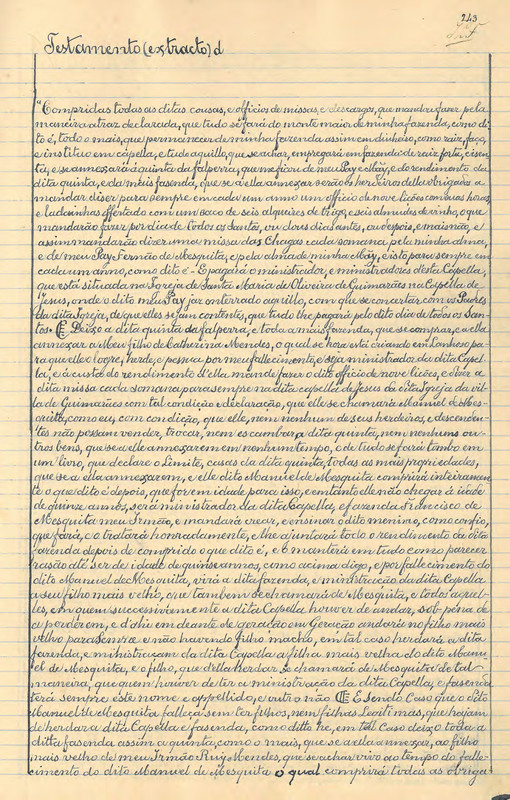 243
Testamento (extracto) d
"Compridas todas as ditas cousas, e officios de missas, e descargos, que mandou fazer pela
maneira atraz declarada, que tudo se fará do monte maior de minha fazenda, como di-
to é, todo o mais, que permanecer de minha fazenda assim em dinheiro, como raiz, faço,
e instituo em capella, e tudo aquillo, que se achar, empregará em fazenda de raiz forra, e isen-
ta, e se annexará á quinta da falperra, que me ficou de meu Pay e May, e do rendimento da
dita quinta, e da mais fasenda, que se a ella annexar serão os herdeiros della obrigados a
mandar diser para sempre em cada um anno um officio de nove lições com suas horas,
e ladainhas offertado com um saco de seis alqueires de trigo, e seis almudes de vinho, o que
mandarão fazer por dia de todos os santos, ou dois dias antes, ou depois, e mais não, e
assim mandarão dizer uma missa das Chagas cada somana pela minha alma,
e de meu Pay Fernão de Mesquita, e pela alma de minha Mãy, e isto para sempre em
cada um anno, como dito é - E pagará o ministrador, e ministradores desta Capella,
que está situada na Igreja de Santa Maria de Oliveira de Guimarães na Capella de
Jesus, onde o dito meu Pay jaz enterrado aquillo, com que se concertar com os Padres
da dita Igreja, de que elles sejam contentes, que tudo lhe pagará pelo dito dia de todos os San-
tos. Deixo a dita quinta da falperra, e toda a mais fazenda, que se comprar, e a ella
annexar a Meu filho de Catherina Mendes, o qual se hora está criando em Lanhoso pa-
ra que elle logre, herde, e pessua por meu fallecimento, e seja ministrador da dita Capel-
la, e á custa do rendimento d'ella mande fazer o dito officio de nove lições, e diser a
dita missa cada somana para sempre na dita capella de Jesus da dita Igreja da vil-
la de Guimarães com tal condição e declaração, que elle se chamará Manuel de Mes-
quita, como eu, com condição, que elle, nem nenhum de seus herdeiros, e descenden-
tes não possam vender, trocar, nem escambar a dita quinta, nem nenhuns ou-
tros bens, que se a elle annexarem em nenhum tempo, e de tudo se fará tombo em
um livro, que declare o Limite, casas da dita quinta, todas as mais propriedades,
que se a ella annexarem, e elle dito Manuel de Mesquita comprirá inteiramen-
te o que dito é depois, que for em idade para isso, e emtanto elle não chegar á idade
de quinze annos, será ministrador da dita Capella, e fasenda Francisco de
Mesquita meu Irmão, e mandará crear, e ensinar o dito menino, como confio,
que fará, e o tratará honradamente, e lhe ajuntará todo o rendimento da dita
fazenda depois de comprido o que dito é, e o manterá em tudo como parecer
rasão até ser de idade de quinse annos, como acima digo, e por fallecimento do
dito Manuel de Mesquita, virá a dita fazenda, e ministração da dita Capella
a seu filho mais velho, que tambem se chamará de Mesquita, e todos aquel-
les, em quem successivamente a dita Capella houver de andar, sob pena de
a perderem, e d'ahi em deante de geração em Geração andará no filho mais
velho para sempre e não havendo filho macho, em tal caso herdará a dita
fazenda, e ministraçam da dita Capella a filha mais velha do dito Manu-
el de Mesquita, e o filho, que d'ella herdar se chamará de Mesquita de tal
maneira, que quem houver de ter a ministração da dita Capella, e fasenda
terá sempre este nome e appellido, e outro não E sendo Caso que o dito
Manuel de Mesquita falleça sem ter filhos, nem filhas Legitimas, que hajam
de herdar a dita Capella e fasenda, como dito he, em tal Caso deixo toda a
ditta fasenda assim a quinta, como o mais, que se a ella annexar, ao filho
mais velho de meu Irmão Ruy Mendes, que se achar vivo ao tempo do falle-
cimento do dito Manuel de Mesquita o qual comprirá todas as obriga-